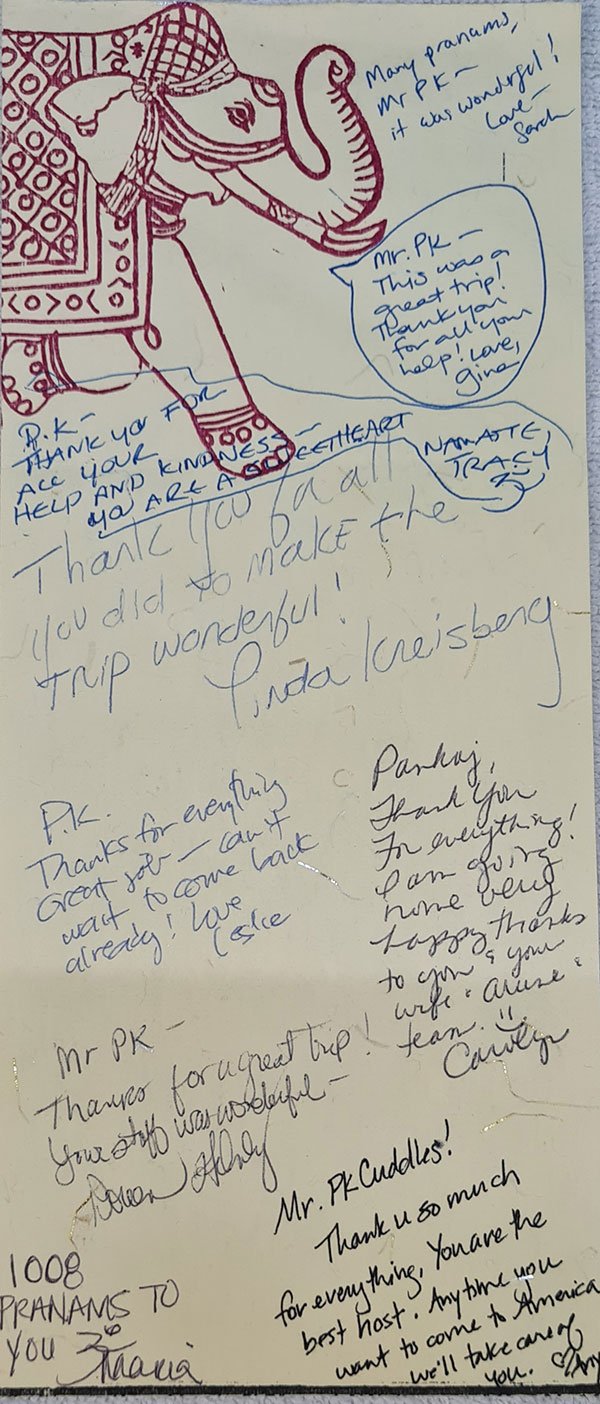 Many pranams,
Mr PK —
it was wondrful!
Love —
Sarah
Mr. PK —
This was a
great trip!
Thank you
for all your
help! Love,
Gina
P.K —
THANK YO FOR
ALL YOUR
HELP AND KINDNESS —
YOU ARE A SWEETHEART
NAMASTE,
TRACY
ॐ
Thank You for all
you did to make the
trip wonderful!
Linda Kreisberg
P.K.
Thanks for everything
Great job — can't
wait to come back
already! Love
Leslie
Pankaj,
Thank You
For everything!
I am going
home very
happy thanks
to you & your
wife &
team.
Carolyn
Mr PK —
Thanks for a great trip!
Your staff was wonderful —
Mr. PK Cuddles!
Thank u so much
for everything, You are the
best host. Anytime you
want to come to America
we'll take care of
you. ♡ Amy
1008
PRANAMS TO
YOU ॐ
Maria